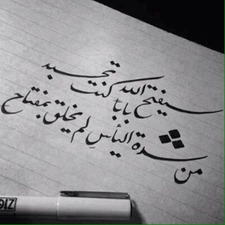 سيفتح الله بابا كنت تحسبه
من شدة اليأس لم يخلق بمفتاح